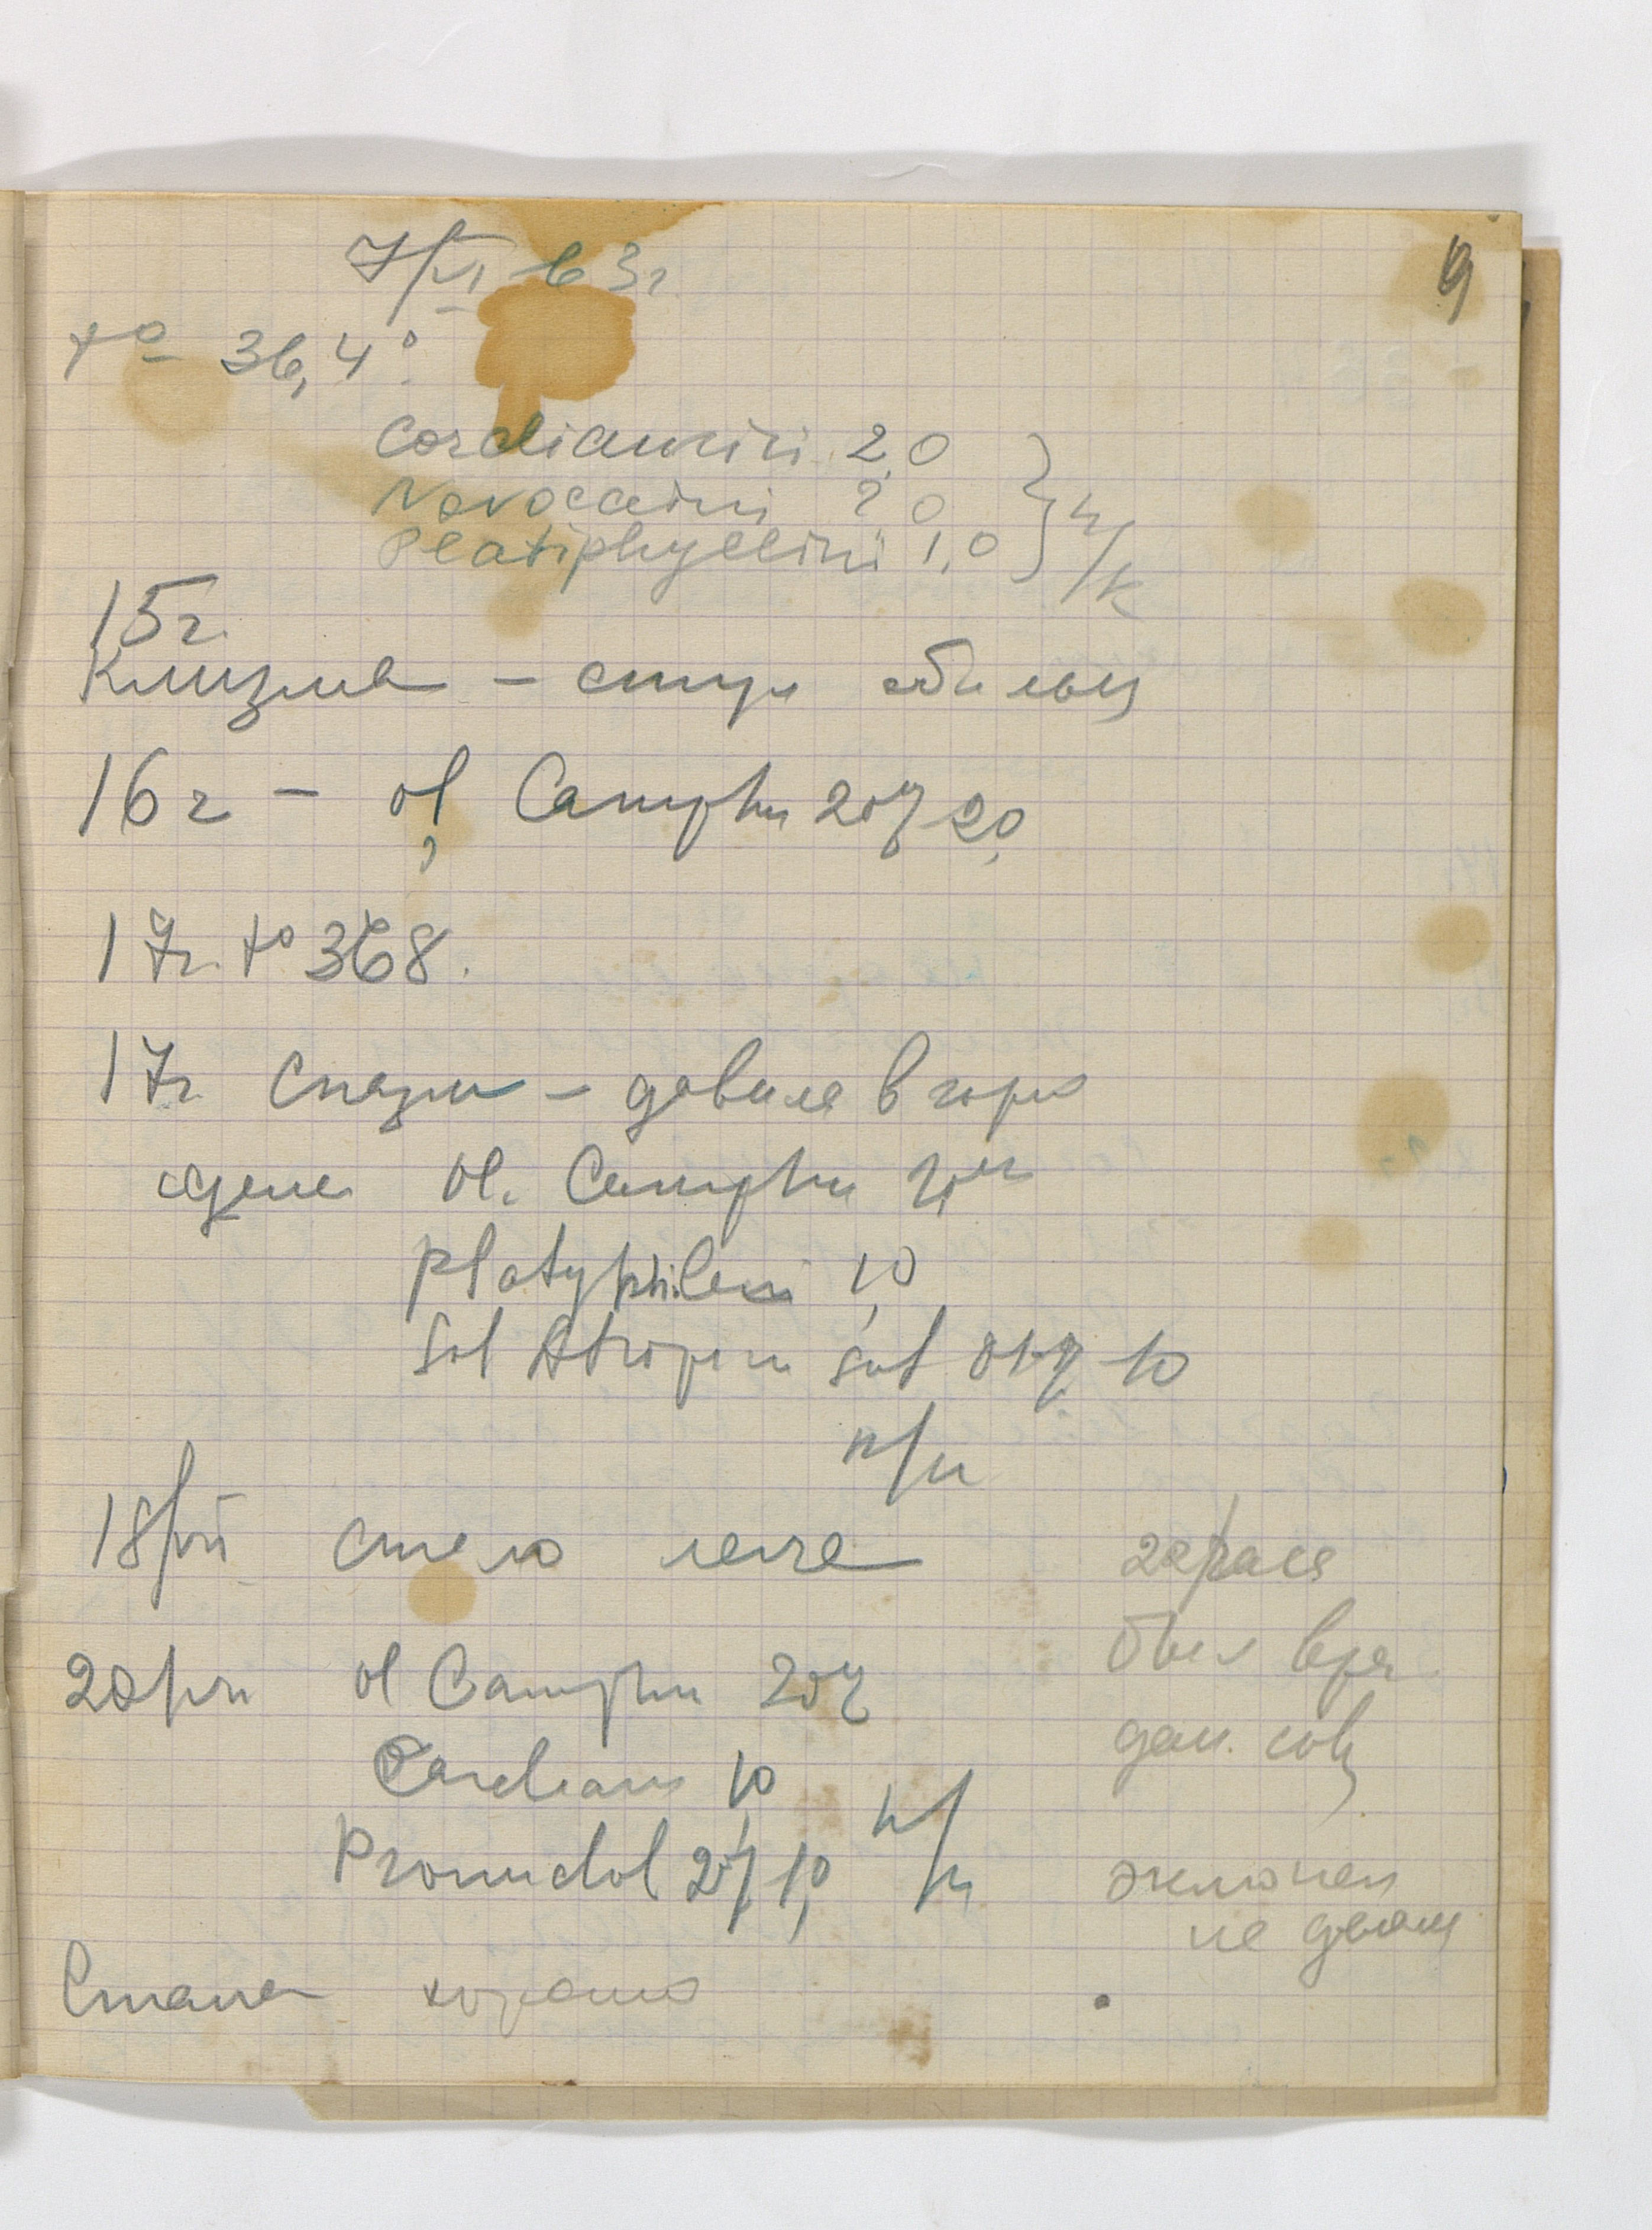 9
7/VI 63г
t° 36,4°
Cordiamini 2,0
Novocaini 2,0
Platiphyllini 1,0 п/к
15г.
Клизма – стул обильн
16г – ol Camphu 20% 2,0
17г. t° 368.
17г Спазм – давила в горло
сделан Ol. Camphu
Platyphileni 1,0
Sol Atropini sulf 01% 10
п/к
18/VII стало легче
20/VII ol Camphu 20%
Cardiam 1,0
Promedol 2% 1,0 п/к
Стала хорошо
2 часа
был вра
не